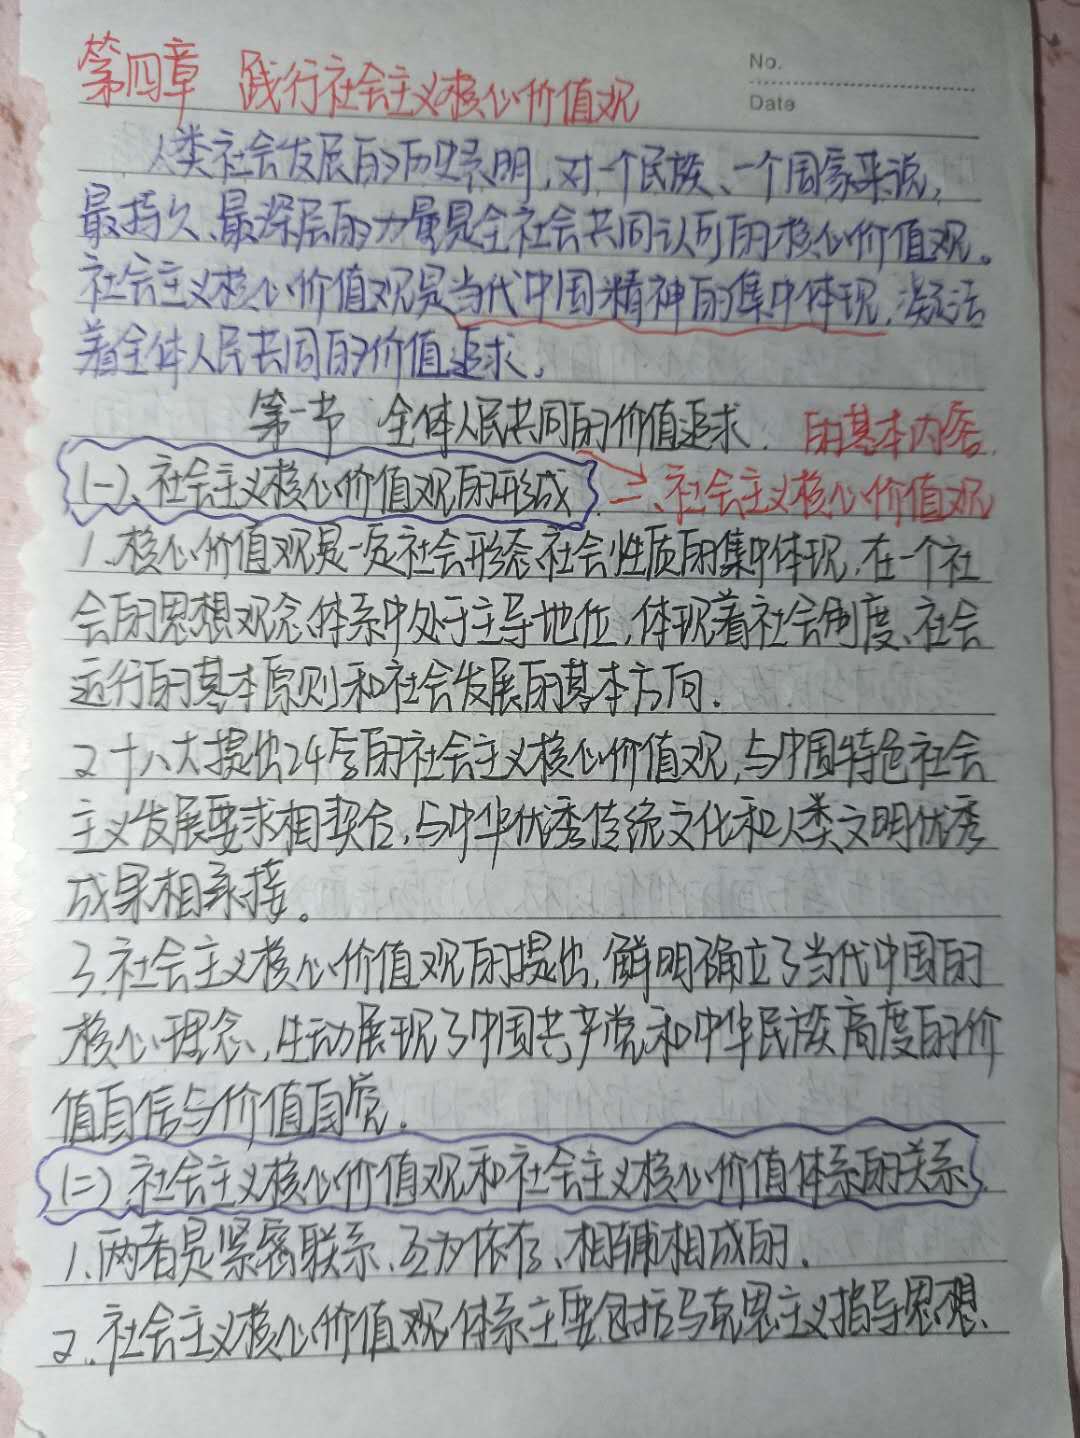 No.
Date
第四章 践行社会主义核心价值观
人类社会发展的历史表明,对一个民族、一个国家来说,
最持久、最深层的力量是全社会共同认可的核心价值观。
社会主义核心价值观是当代中国精神的集中体现,凝结
着全体人民共同的价值追求,
第一节 全体人民共同的价值追求. 的基本内容.
(一)、社会主义核心价值观的形成 → 一、社会主义核心价值观
1.核心价值观是一定社会形态、社会性质的集中体现,在一个社
会的思想观念体系中处于主导地位,体现着社会制度、社会
运行的基本原则和社会发展的基本方向.
2 十八大提出24字的社会主义核心价值观,与中国特色社会
主义发展要求相契合,与中华优秀传统文化和人类文明优秀
成果相承接。
3.社会主义核心价值观的提出,鲜明确立了当代中国的
核心理念,生动展现了中国共产党和中华民族高度的价
值自信与价值自觉.
(二)、社会主义核心价值观和社会主义核心价值体系的关系.
1、两者是紧密联系、互为依存、相辅相成的.
2、社会主义核心价值观体系主要包括马克思主义指导思想、